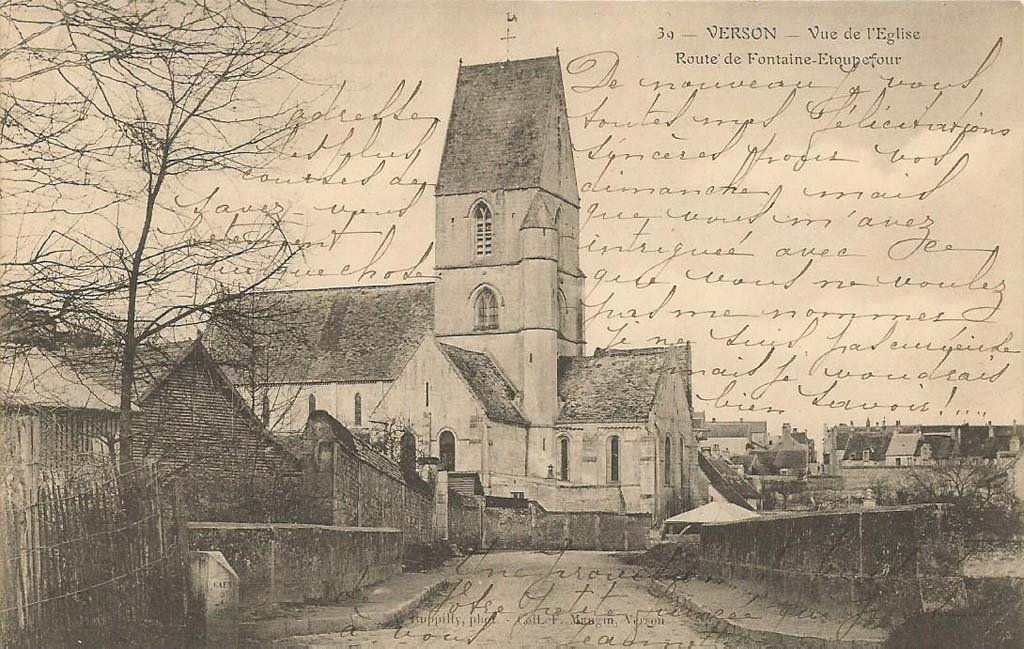 39 — VERSON — Vue de l'Eglise
Route de Fontaine-Etoupefour
De nouveau, vous
toutes mes félicitations
sincères pour vos
dimanche mais
que vous m'avez
intriguée avec ce
que vous ne voulez
pas me nommer
je ne suis pas curieuse
mais je voudrais
bien savoir!....
adresse
et plus
courses de
Savez-vous
quelque chose
CAEN
Une
Votre petite
Ruppilly, phot. - Coll. F. Mangin, Verson
à vous Jeanne